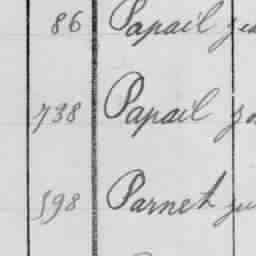 86 Papail
738 Papail
598 Parnet